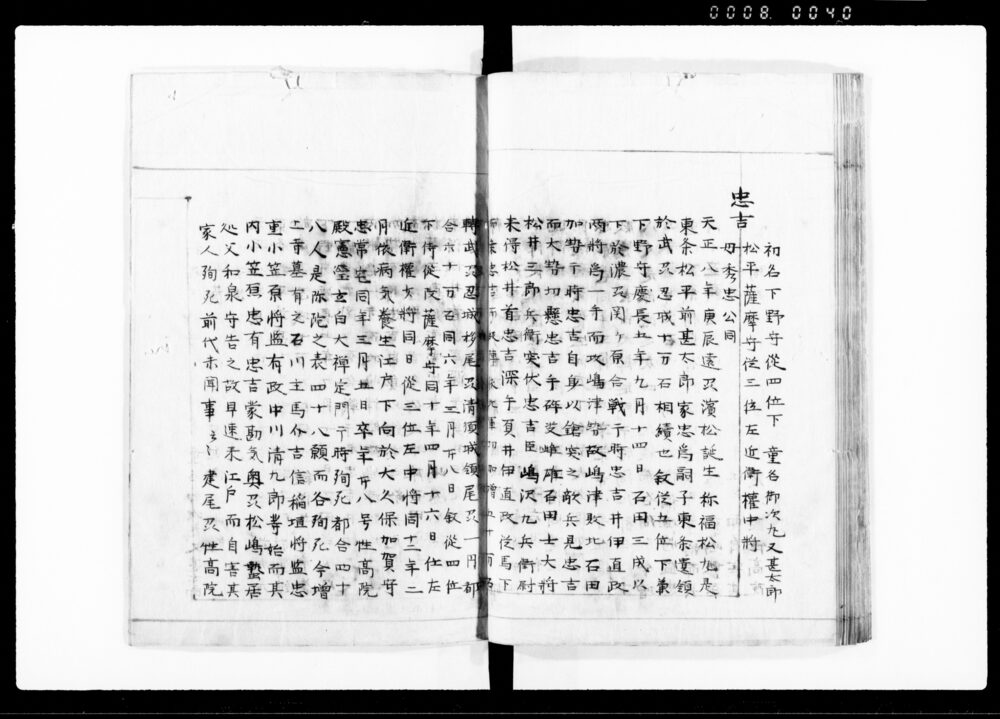 0008 0040
忠吉
初名下野守從四位下 童名御次丸又甚太郎
松平薩摩守從三位左近衛權中将
母秀忠公同
天正八年庚辰遠刕濱松誕生称福松丸是
東条松平前甚太郎家忠為嗣子東条遺領
於武刕忍城十万石相續也叙從五位下兼
下野守慶長五年九月十四日石田三成以
下於濃刕関ヶ原合戦于時忠吉井伊直政
両将為一手而攻嶋津勢故嶋津敗北石田
加勢于時忠吉自身以鎗突之敵兵見忠吉
而大勢切懸忠吉手砕雙雌雄石田士大将
松井三郎兵衛突伏忠吉臣嶋沢九兵衛尉
来得松井首忠吉深手負井伊直政從馬下
轉武刕忍城移尾刕清須城領尾刕一円都
合六十二万石同六年三月廿八日叙從四位
下侍從改薩摩守同十年四月十六日任左
近衛權少将同日從三位左中将同十二年二
月依病気養生江府下向於大久保加賀守
忠常宅同年三月五日卒年廿八号性高院
殿憲瑩玄白大禅定門于時殉死都合四十
八人是弥陀之表四十八願而各殉死今増
上寺墓有之石川主馬介吉信稲垣将監忠
重小笠原将監有政中川清九郎等始而其
内小笠原忠有忠吉蒙勘気奥刕松嶋蟄居
処父和泉守告之故早速来江戸而自害其
家人殉死前代未聞事也 建尾刕性高院